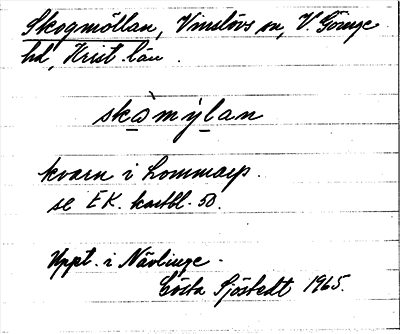 Skogmöllan, Vinslövs sn, V. Göinge
hd, Krist. län.
skòmýlan
kvarn i Lommarp.
se EK. kartbl. 50.
Uppt. i Nävlinge.
Gösta Sjöstedt 1965.